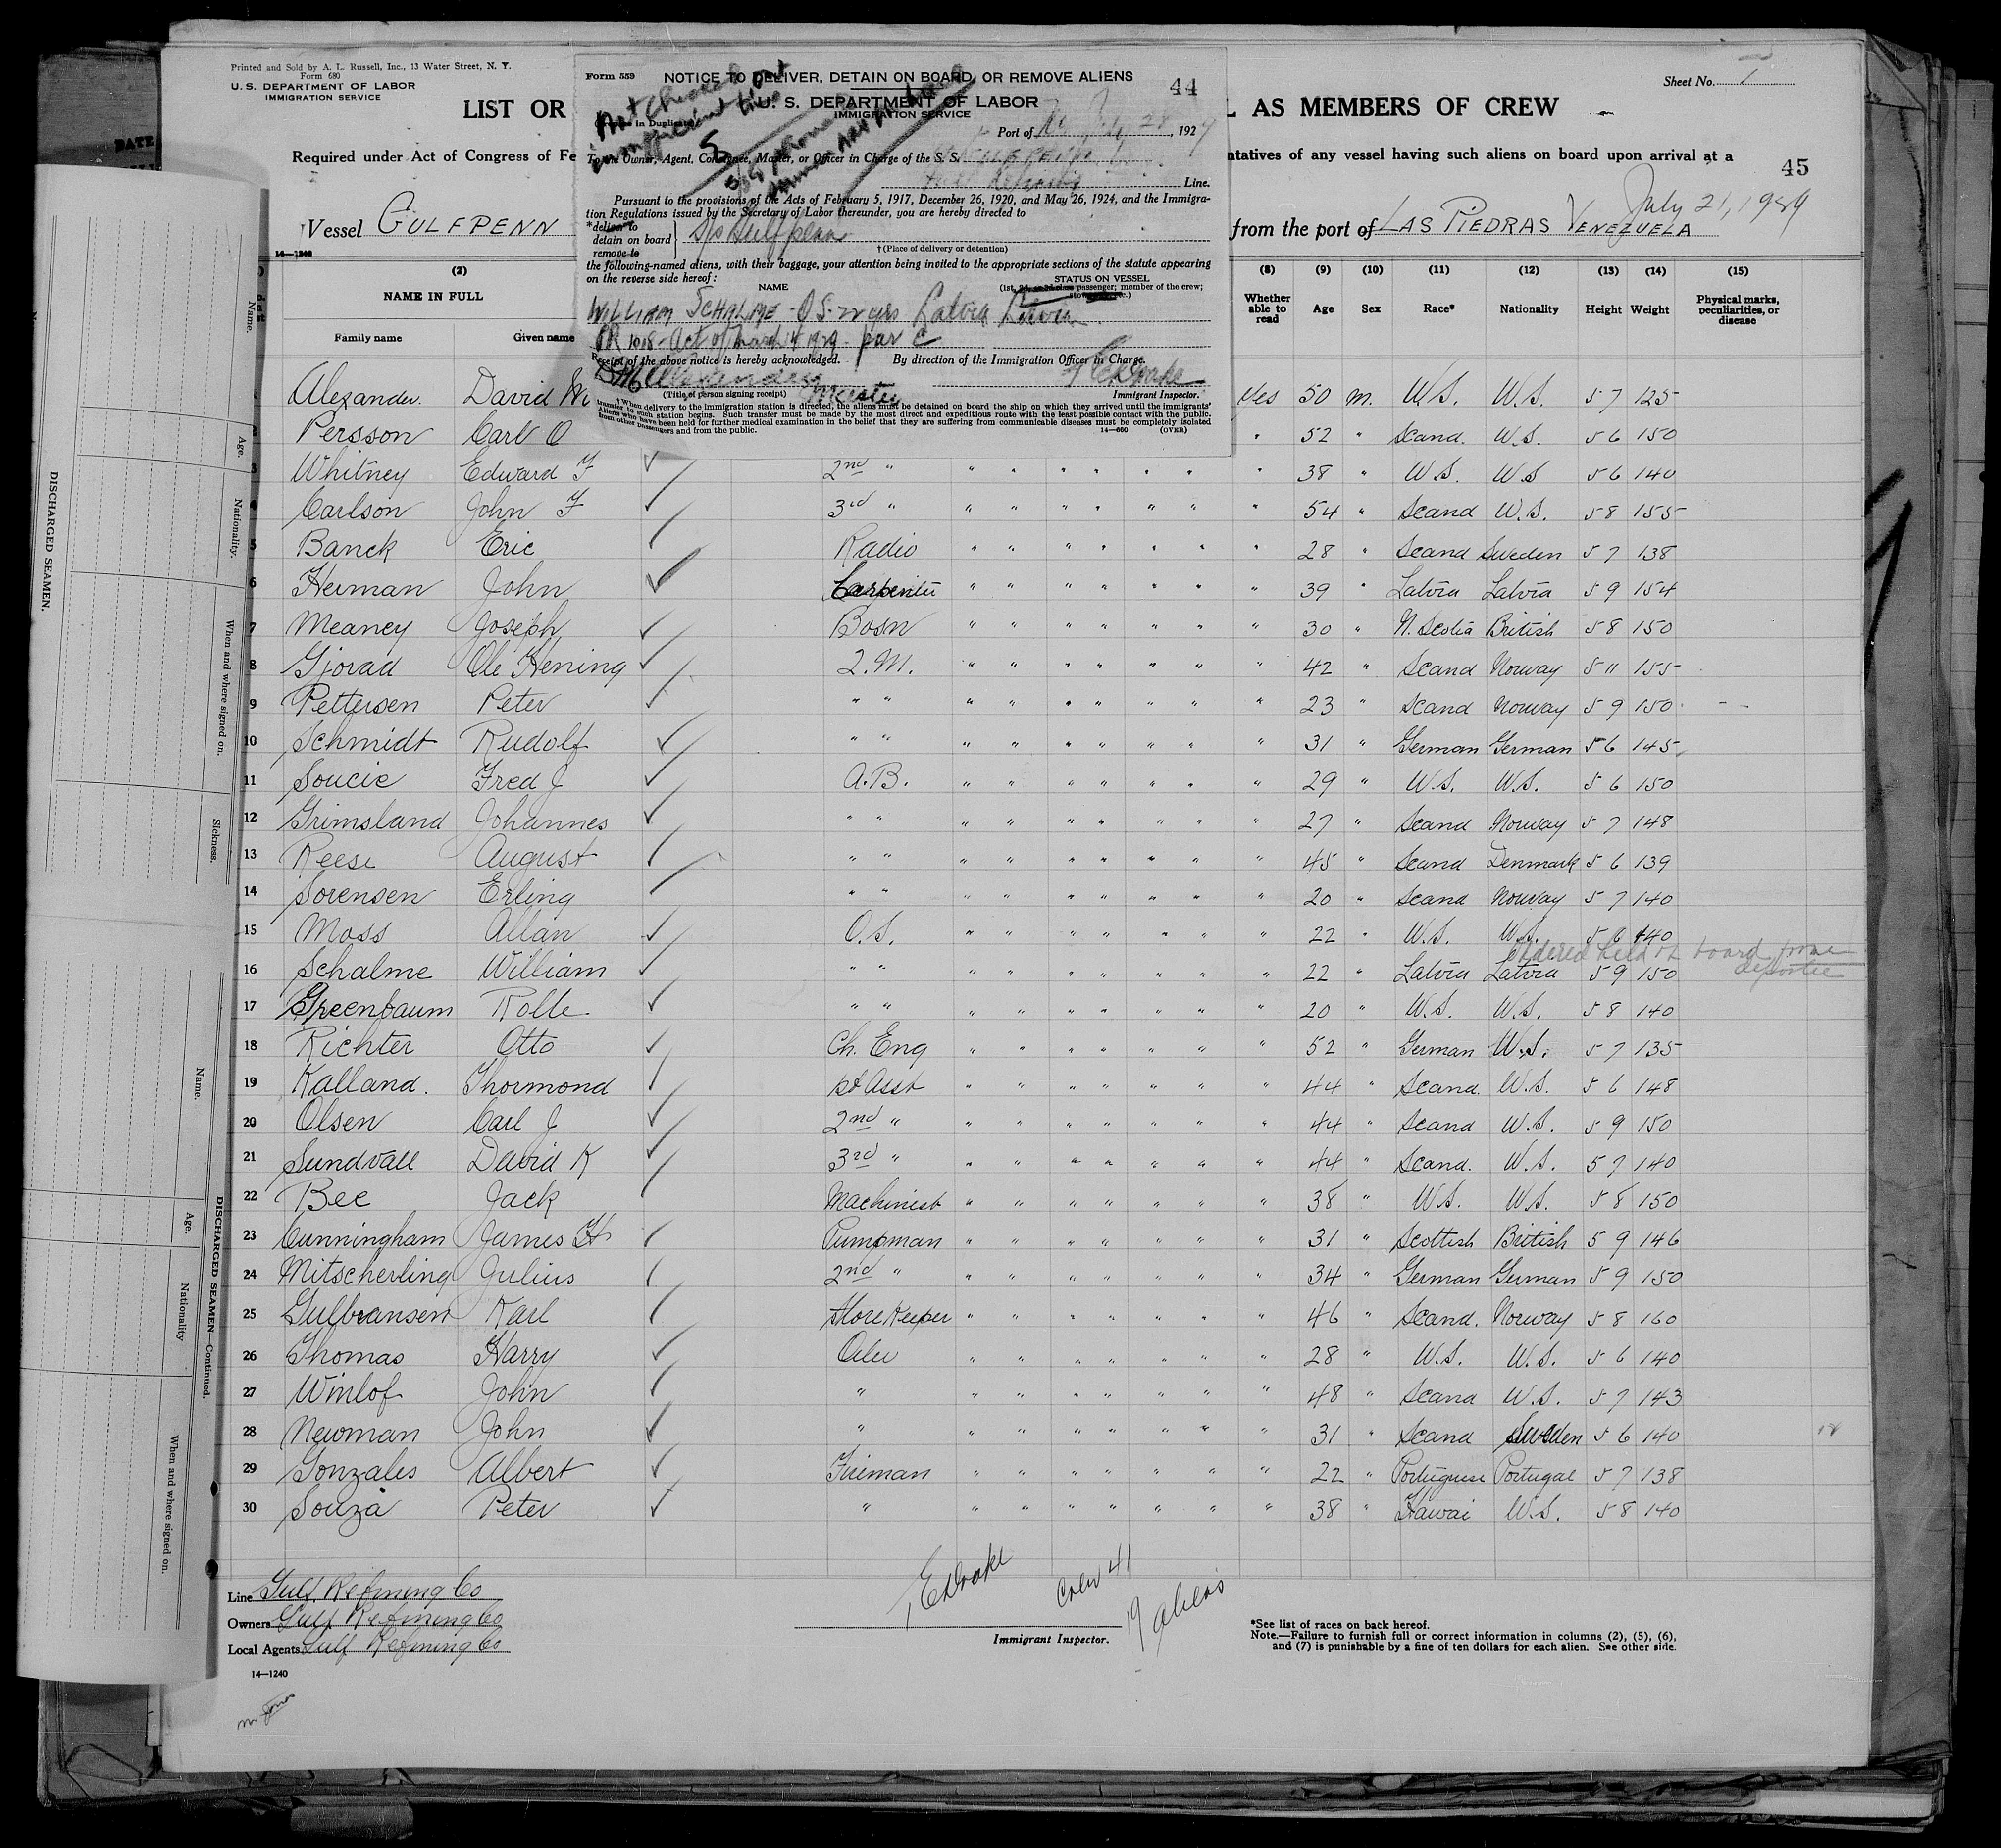 Printed and Sold by A. L. Russell, Inc., 13 Water Street, N. Y.
Form 680
U. S. DEPARTMENT OF LABOR
IMMIGRATION SERVICE
LIST OR
L AS MEMBERS OF CREW
Sheet No.
Required under Act of Congress of Fe
ntatives of any vessel having such aliens on board upon arrival at a
45
Vessel GULFPENN
from the port of LAS PIEDRAS VENEZUELA
July 21, 1929
14—1240
Form 559
NOTICE TO DELIVER, DETAIN ON BOARD, OR REMOVE ALIENS
44
U. S. DEPARTMENT OF LABOR
IMMIGRATION SERVICE
Port of 28, 1929
To the Owner, Agent, Consignee, Master, or Officer in Charge of the S. S. GULFPENN
Gulf Refining Line.
Pursuant to the provisions of the Acts of February 5, 1917, December 26, 1920, and May 26, 1924, and the Immigra-
tion Regulations issued by the Secretary of Labor thereunder, you are hereby directed to
*deliver to
detain on board
remove to
S/S Gulfpenn
† (Place of delivery or detention)
the following-named aliens, with their baggage, your attention being invited to the appropriate sections of the statute appearing
on the reverse side hereof:
NAME
STATUS ON VESSEL
(1st, 2d, or 3d class passenger; member of the crew;
WILLIAM SCHALME - O S - 22 yrs Latvia
PR 1018 - Act of March 4 1929 - par C
Receipt of the above notice is hereby acknowledged.
By direction of the Immigration Officer in Charge.
Alexander
Master
(Title of person signing receipt)
Immigrant Inspector.
† When delivery to the immigration station is directed, the aliens must be detained on board the ship on which they arrived until the immigrants'
transfer to such station begins. Such transfer must be made by the most direct and expeditious route with the least possible contact with the public.
Aliens who have been held for further medical examination in the belief that they are suffering from communicable diseases must be completely isolated
from other passengers and from the public.
14—660
(OVER)
(2) (8) (9) (10) (11) (12) (13) (14) (15)
NAME IN FULL
Family name Given name
Whether able to read Age Sex Race* Nationality Height Weight Physical marks, peculiarities, or disease
Alexander David Yes 50 m. U.S. U.S. 5 7 125
Persson Carl O " 52 " Scand. U.S. 5 6 150
3 Whitney Edward F 2nd " " " " " " " " 38 " U.S. U.S 5 6 140
4 Carlson John F 3rd " " " " " " " " 54 " Scand U.S. 5 8 155
5 Banck Eric Radio " " " " " " " 28 " Scand Sweden 5 7 138
6 Herman John Carpenter " " " " " " " 39 " Latvia Latvia 5 9 154
7 Meaney Joseph Bosn " " " " " " " 30 " N. Scotia British 5 8 150
8 Gjorad Ole Hening Q.M. " " " " " " " 42 " Scand Norway 5 11 155
9 Pettersen Peter " " " " " " " " " 23 " Scand Norway 5 9 150
10 Schmidt Rudolf " " " " " " " " " 31 " German German 5 6 145
11 Soucie Fred J A.B. " " " " " " " 29 " U.S. U.S. 5 6 150
12 Grimsland Johannes " " " " " " " " " 27 " Scand Norway 5 7 148
13 Reese August " " " " " " " " " 45 " Scand Denmark 5 6 139
14 Sorensen Erling " " " " " " " " " 20 " Scand Norway 5 7 140
15 Moss Allan O.S. " " " " " " " 22 " U.S. U.S. 5 6 140
Ordered held on board
deportee
16 Schalme William " " " " " " " " " 22 " Latvia Latvia 5 9 150
17 Greenbaum Rolle " " " " " " " " " 20 " U.S. U.S. 5 8 140
18 Richter Otto Ch. Eng " " " " " " " 52 " German U.S. 5 7 135
19 Kalland. Thormond 1st Asst " " " " " " " 44 " Scand. U.S. 5 6 148
20 Olsen Carl J 2nd " " " " " " " " 44 " Scand U.S. 5 9 150
21 Sundvall David K 3rd " " " " " " " " 44 " Scand. U.S. 5 7 140
22 Bee Jack Machinist " " " " " " " 38 " U.S. U.S. 5 8 150
23 Cunningham James H Pumpman " " " " " " " 31 " Scottish British 5 9 146
24 Mitscherling Julius 2nd " " " " " " " " 34 " German German 5 9 150
25 Gulbransen Karl Store Keeper " " " " " " " 46 " Scand. Norway 5 8 160
26 Thomas Harry Oiler " " " " " " " 28 " U.S. U.S. 5 6 140
27 Winlof John " " " " " " " " 48 " Scand U.S. 5 7 143
28 Newman John " " " " " " " " 31 " Scand Sweden 5 6 140
29 Gonzales Albert Fireman " " " " " " " 22 " Portuguese Portugal 5 7 138
30 Souza Peter " " " " " " " " 38 " Hawai U.S. 5 8 140
Line Gulf Refining Co
Owners Gulf Refining Co
Local Agents Gulf Refining Co
14—1240
Drake
Immigrant Inspector.
Crew 41
19 aliens
*See list of races on back hereof.
Note.—Failure to furnish full or correct information in columns (2), (5), (6),
and (7) is punishable by a fine of ten dollars for each alien. See other side.
DISCHARGED SEAMEN.
Name.
Age.
Nationality.
When and where signed on.
Sickness.
DISCHARGED SEAMEN—Continued.
Name.
Age.
Nationality
When and where signed on.